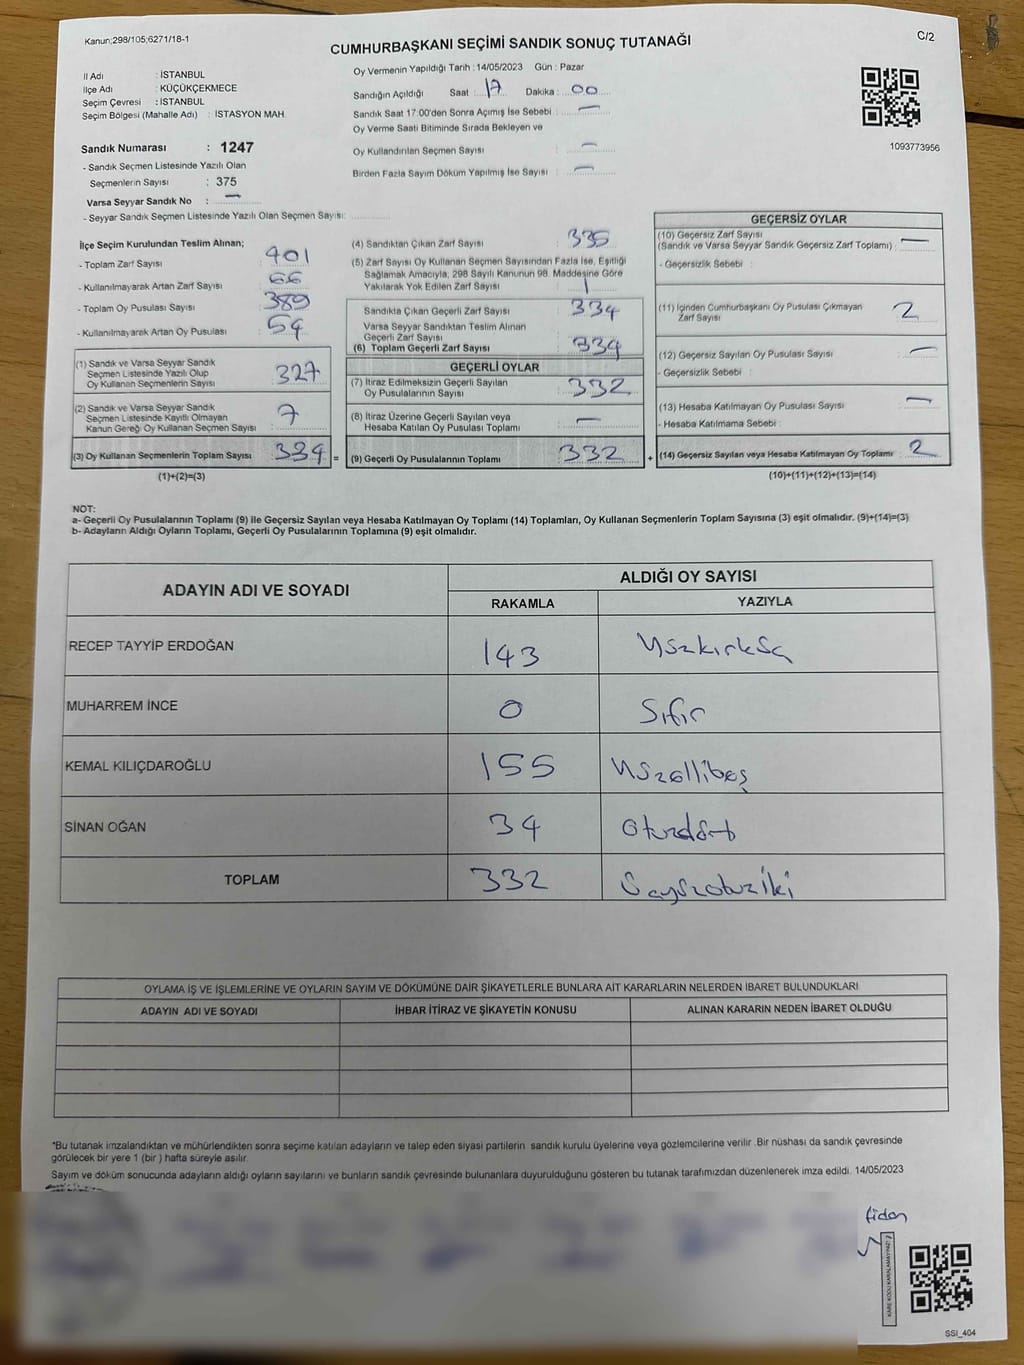 Kanun;298/105;6271/18-1
C/2
CUMHURBAŞKANI SEÇİMİ SANDIK SONUÇ TUTANAĞI
İl Adı : İSTANBUL
İlçe Adı : KÜÇÜKÇEKMECE
Seçim Çevresi : İSTANBUL
Seçim Bölgesi (Mahalle Adı) : İSTASYON MAH.
Sandık Numarası : 1247
- Sandık Seçmen Listesinde Yazılı Olan
Seçmenlerin Sayısı : 375
Varsa Seyyar Sandık No : —
- Seyyar Sandık Seçmen Listesinde Yazılı Olan Seçmen Sayısı:
Oy Vermenin Yapıldığı Tarih : 14/05/2023 Gün : Pazar
Sandığın Açıldığı Saat : 17 Dakika : 00
Sandık Saat 17:00'den Sonra Açımış İse Sebebi : —
Oy Verme Saati Bitiminde Sırada Bekleyen ve
Oy Kullandırılan Seçmen Sayısı : —
Birden Fazla Sayım Döküm Yapılmış İse Sayısı : —
1093773956
İlçe Seçim Kurulundan Teslim Alınan;
- Toplam Zarf Sayısı : 401
- Kullanılmayarak Artan Zarf Sayısı : 66
- Toplam Oy Pusulası Sayısı : 389
- Kullanılmayarak Artan Oy Pusulası : 54
(1) Sandık ve Varsa Seyyar Sandık
Seçmen Listesinde Yazılı Olup
Oy Kullanan Seçmenlerin Sayısı : 327
(2) Sandık ve Varsa Seyyar Sandık
Seçmen Listesinde Kayıtlı Olmayan
Kanun Gereği Oy Kullanan Seçmen Sayısı : 7
(3) Oy Kullanan Seçmenlerin Toplam Sayısı : 334 =
(1)+(2)=(3)
(4) Sandıktan Çıkan Zarf Sayısı : 335
(5) Zarf Sayısı Oy Kullanan Seçmen Sayısından Fazla İse, Eşitliği
Sağlamak Amacıyla, 298 Sayılı Kanunun 98. Maddesine Göre
Yakılarak Yok Edilen Zarf Sayısı : 1
Sandıkta Çıkan Geçerli Zarf Sayısı : 334
Varsa Seyyar Sandıktan Teslim Alınan
Geçerli Zarf Sayısı
(6) Toplam Geçerli Zarf Sayısı : 334
GEÇERLİ OYLAR
(7) İtiraz Edilmeksizin Geçerli Sayılan
Oy Pusulalarının Sayısı : 332
(8) İtiraz Üzerine Geçerli Sayılan veya
Hesaba Katılan Oy Pusulaları Toplamı : —
(9) Geçerli Oy Pusulalarının Toplamı : 332 +
GEÇERSİZ OYLAR
(10) Geçersiz Zarf Sayısı
(Sandık ve Varsa Seyyar Sandık Geçersiz Zarf Toplamı) : —
- Geçersizlik Sebebi :
(11) İçinden Cumhurbaşkanı Oy Pusulası Çıkmayan
Zarf Sayısı : 2
(12) Geçersiz Sayılan Oy Pusulası Sayısı : —
- Geçersizlik Sebebi :
(13) Hesaba Katılmayan Oy Pusulası Sayısı : —
- Hesaba Katılmama Sebebi :
(14) Geçersiz Sayılan veya Hesaba Katılmayan Oy Toplamı : 2
(10)+(11)+(12)+(13)=(14)
NOT:
a- Geçerli Oy Pusulalarının Toplamı (9) ile Geçersiz Sayılan veya Hesaba Katılmayan Oy Toplamı (14) Toplamları, Oy Kullanan Seçmenlerin Toplam Sayısına (3) eşit olmalıdır. (9)+(14)=(3)
b- Adayların Aldığı Oyların Toplamı, Geçerli Oy Pusulalarının Toplamına (9) eşit olmalıdır.
ADAYIN ADI VE SOYADI ALDIĞI OY SAYISI
RAKAMLA YAZIYLA
RECEP TAYYİP ERDOĞAN 143 Yüzkırküç
MUHARREM İNCE 0 Sıfır
KEMAL KILIÇDAROĞLU 155 Yüzellibeş
SİNAN OĞAN 34 Otuzdört
TOPLAM 332 Üçyüzotuziki
OYLAMA İŞ VE İŞLEMLERİNE VE OYLARIN SAYIM VE DÖKÜMÜNE DAİR ŞİKAYETLERLE BUNLARA AİT KARARLARIN NELERDEN İBARET BULUNDUKLARI
ADAYIN ADI VE SOYADI İHBAR İTİRAZ VE ŞİKAYETİN KONUSU ALINAN KARARIN NEDEN İBARET OLDUĞU
*Bu tutanak imzalandıktan ve mühürlendikten sonra seçime katılan adayların ve talep eden siyasi partilerin sandık kurulu üyelerine veya gözlemcilerine verilir. Bir nüshası da sandık çevresinde
görülecek bir yere 1 (bir) hafta süreyle asılır.
Sayım ve döküm sonucunda adayların aldığı oyların sayılarını ve bunların sandık çevresinde bulunanlara duyurulduğunu gösteren bu tutanak tarafımızdan düzenlenerek imza edildi. 14/05/2023
fidan
KARE KODU KARALAMAYINIZ!
SSI_404